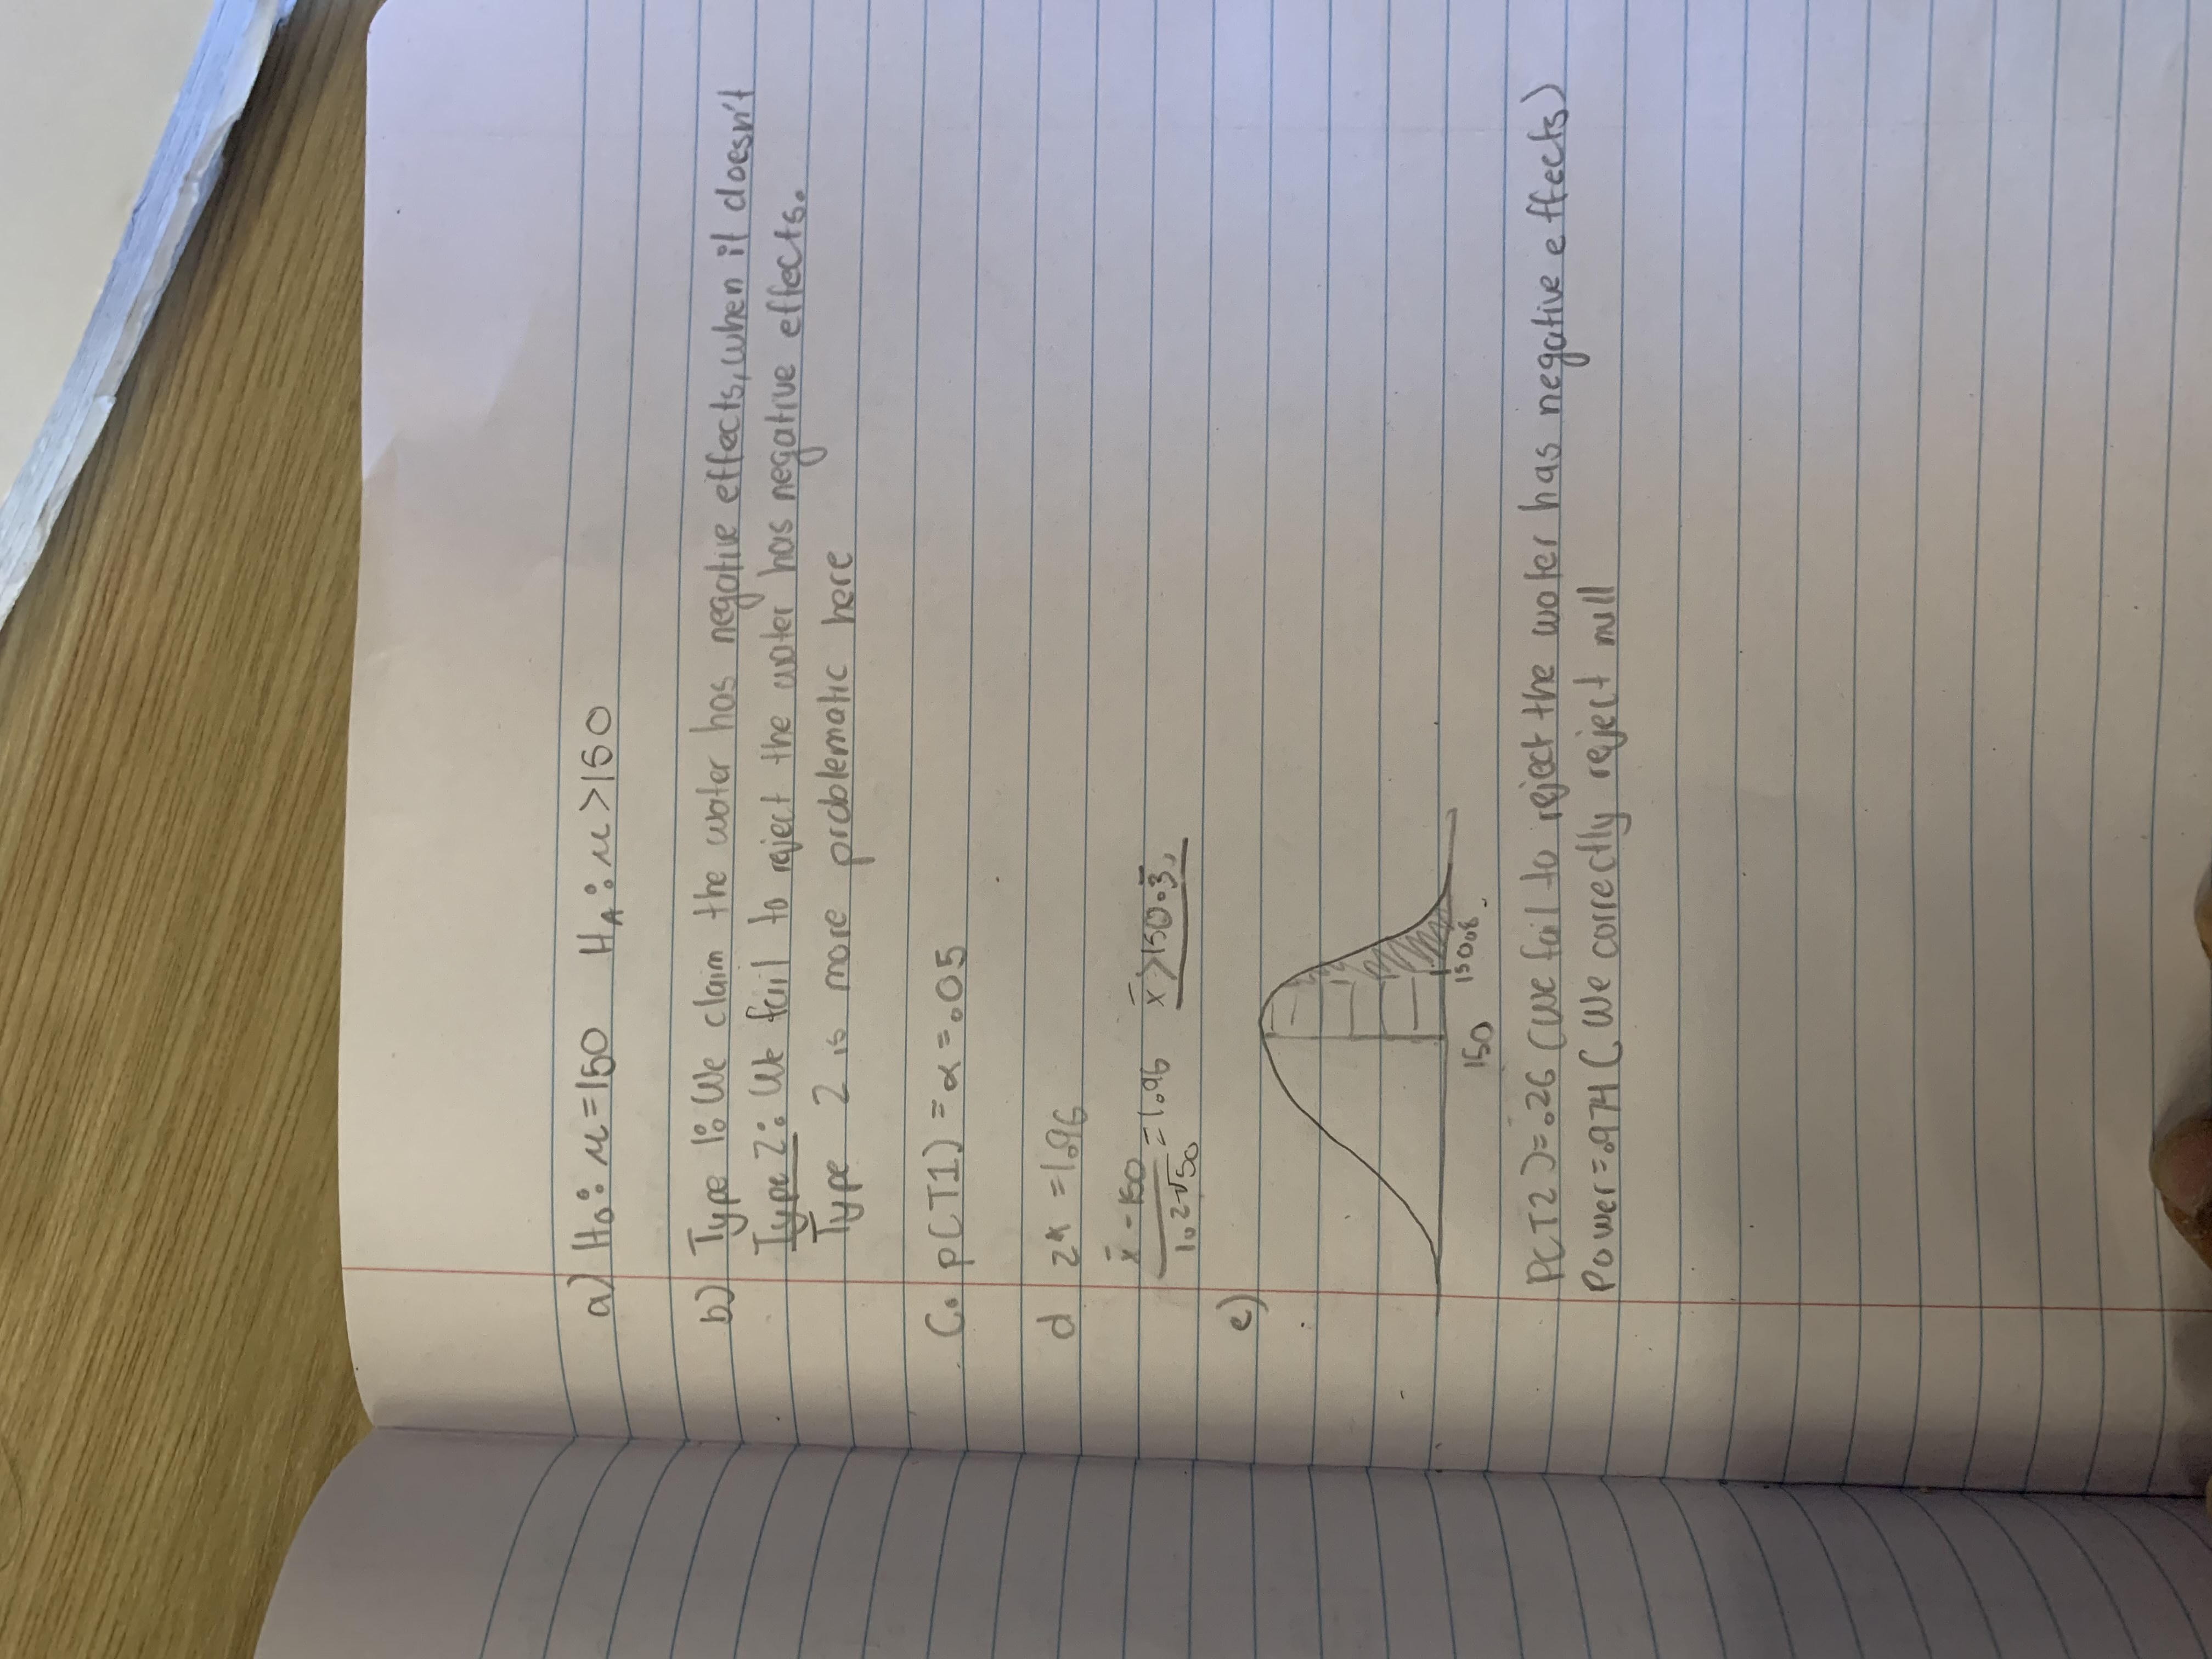 a) H₀: μ=150 H_A: μ>150
b) Type 1: We claim the water has negative effects, when it doesn't
Type 2: We fail to reject the water has negative effects.
Type 2 is more problematic here
C. p(T1) = α = .05
d z* = 1.96
x̄ - 150 / 1.2√50 = 1.96 x̄ > 150.3
e)
150 150.8
P(T2)=.26 (We fail to reject the water has negative effects)
Power=.974 ( We correctly reject null